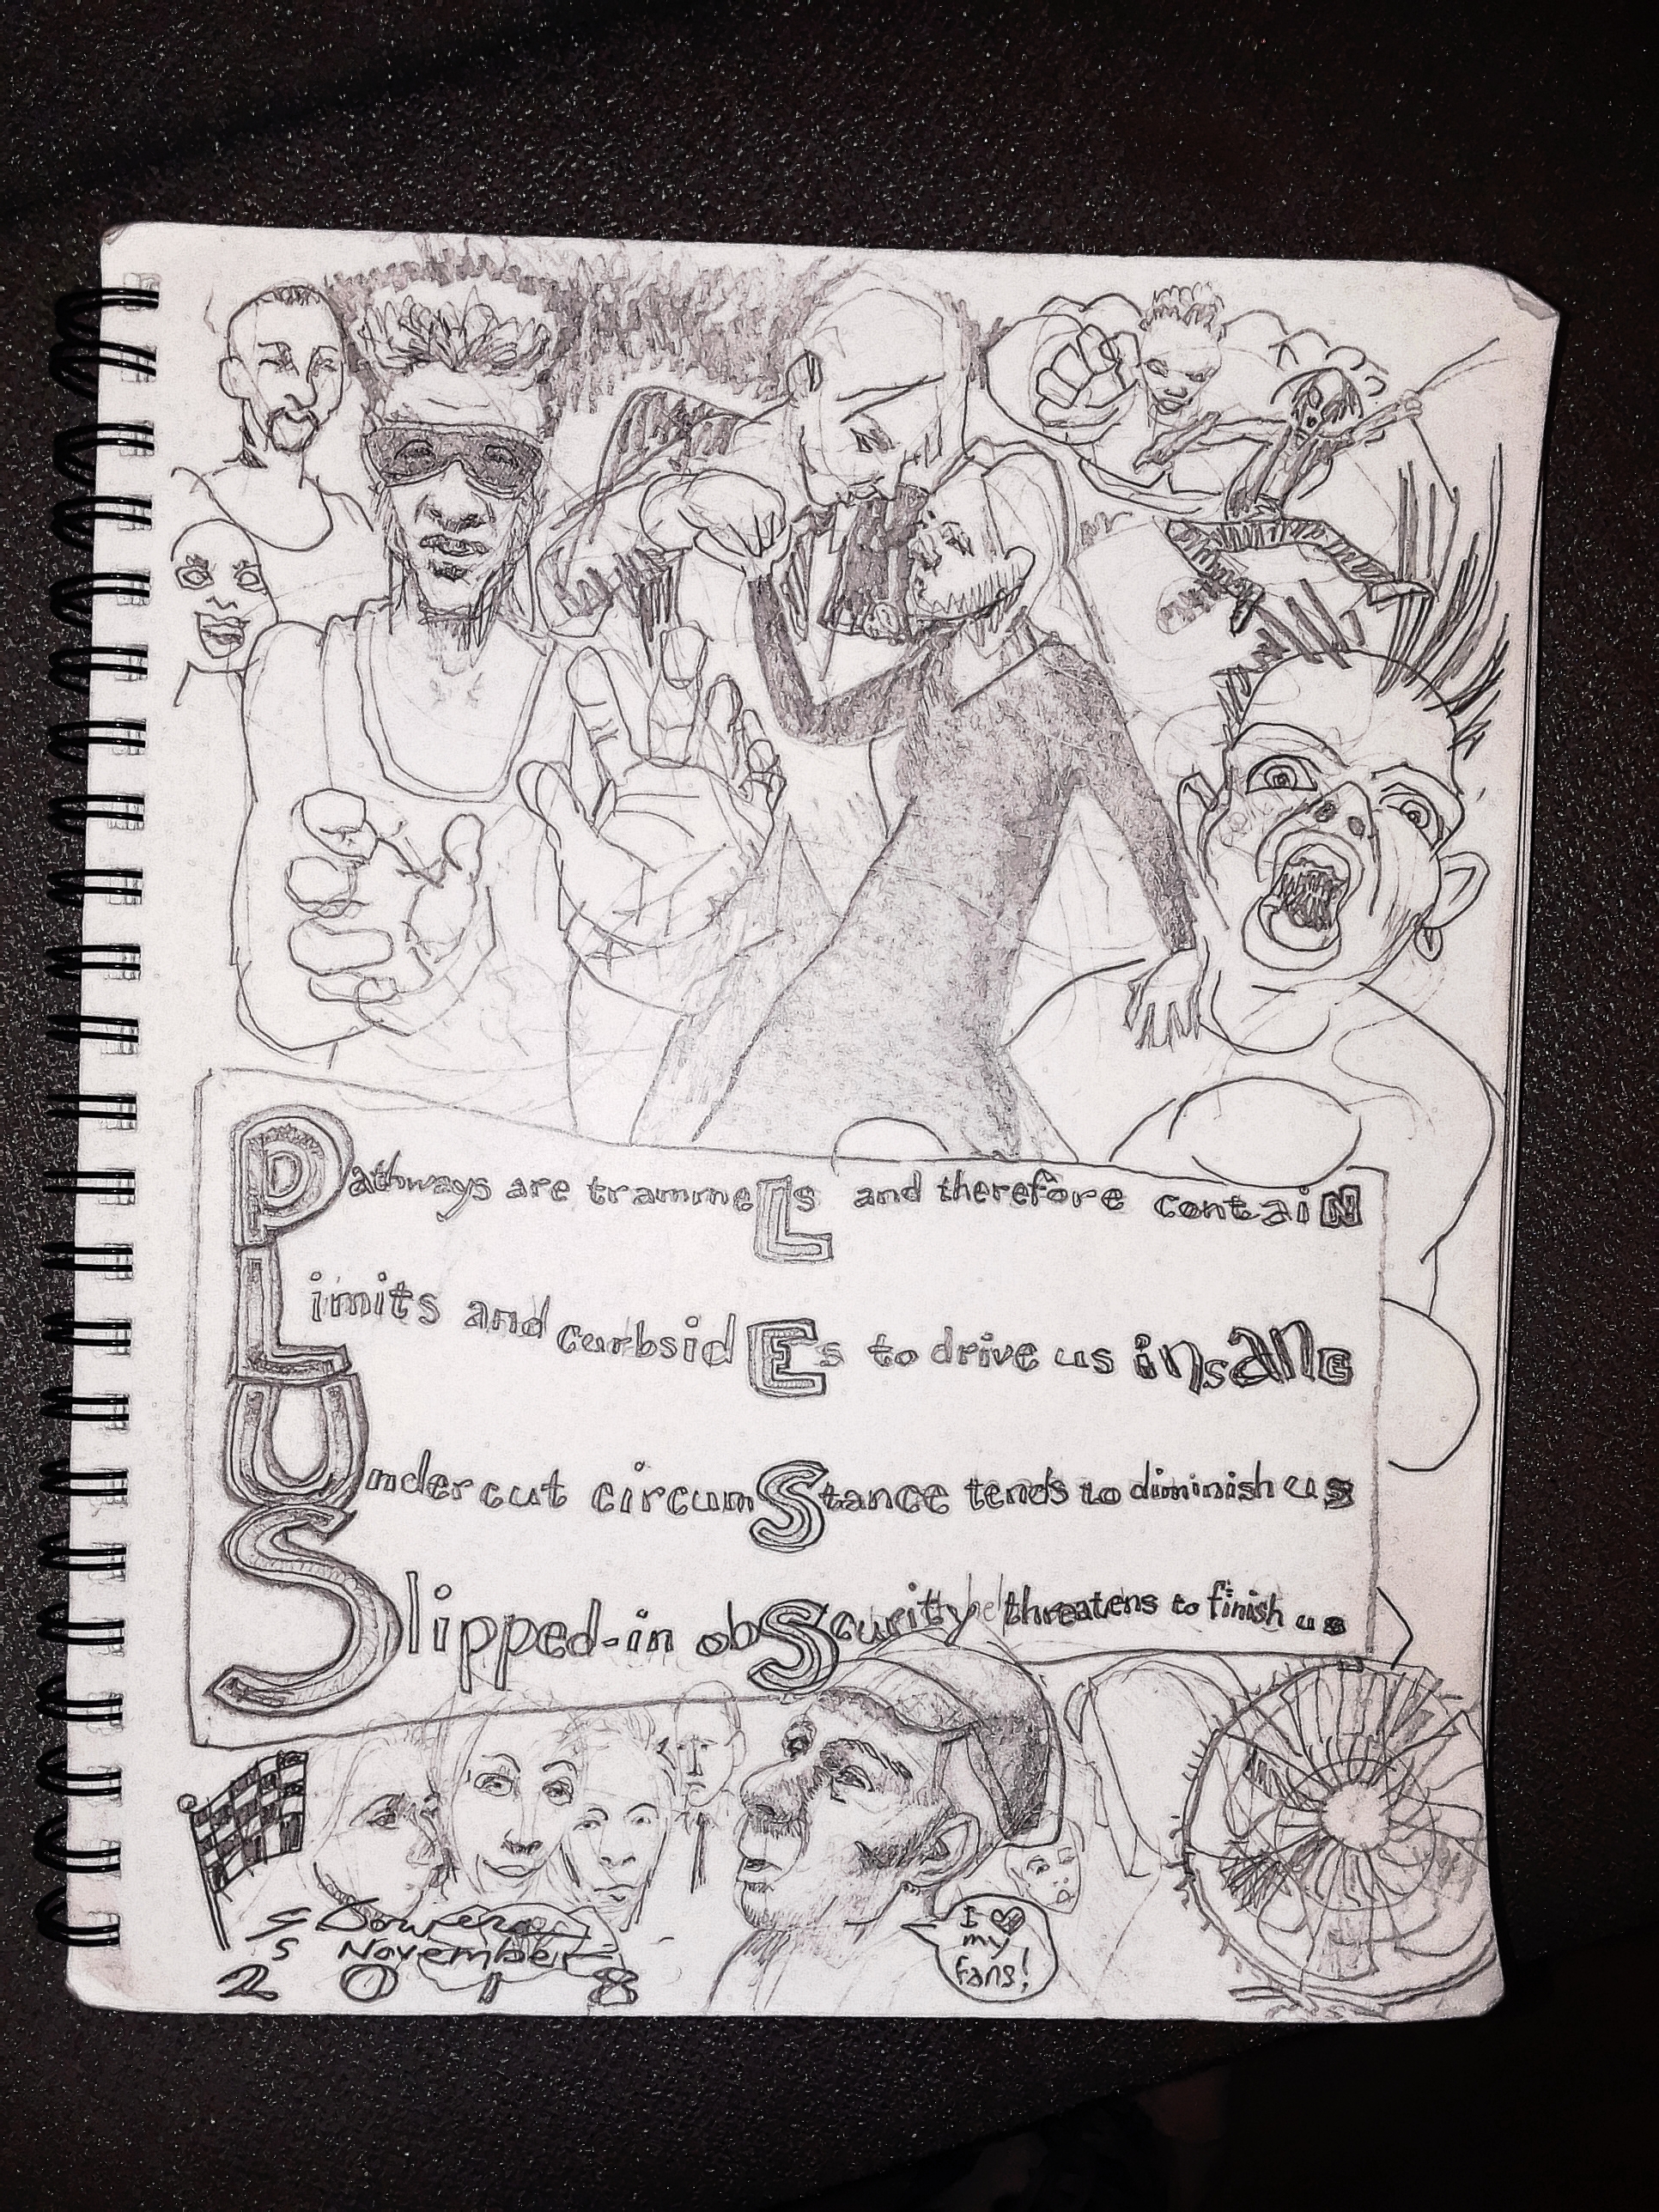 Pathways are trammeLs and therefore contaiN
Limits and curbsidEs to drive us insanE
Undercut circumStance tends to diminish us
Slipped-in obScurity threatens to finish us
I ♥
my
fans!
November
2018